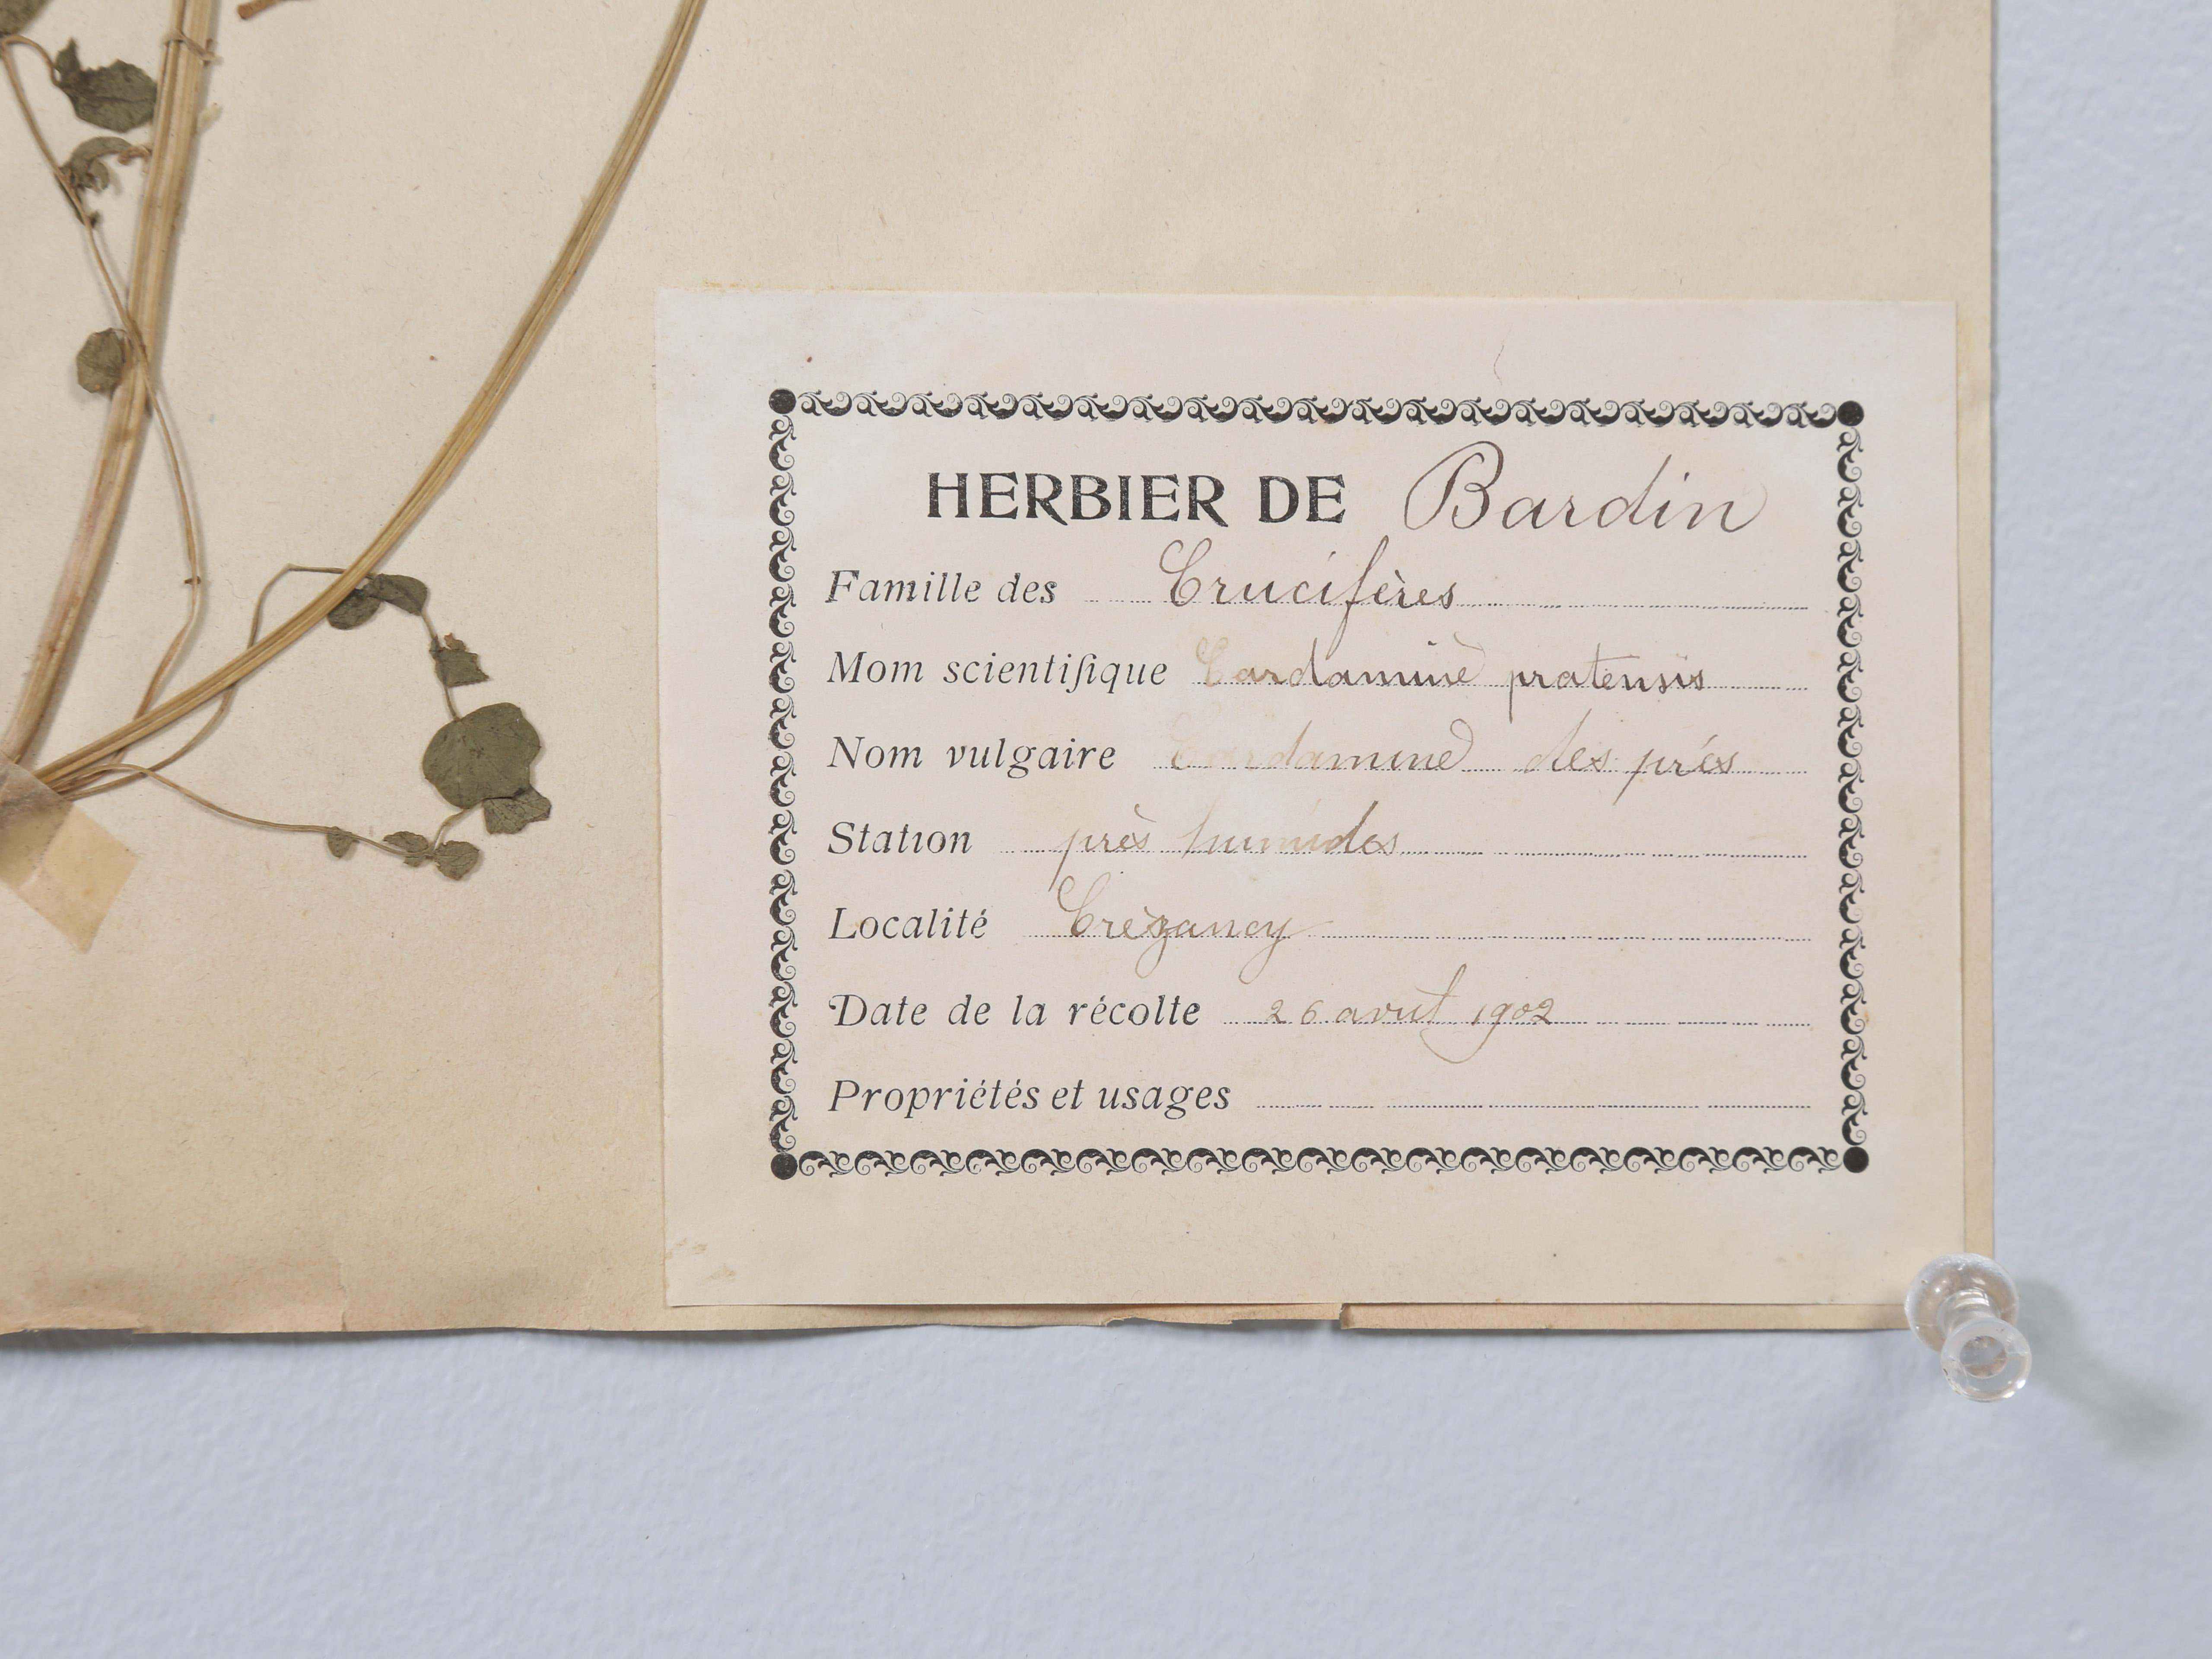 HERBIER DE Bardin
Famille des Crucifères
Mom scientifique Cardamine pratensis
Nom vulgaire Cardamine des prés
Station près humides
Localité Crézancy
Date de la récolte 26 avril 1902
Propriétés et usages